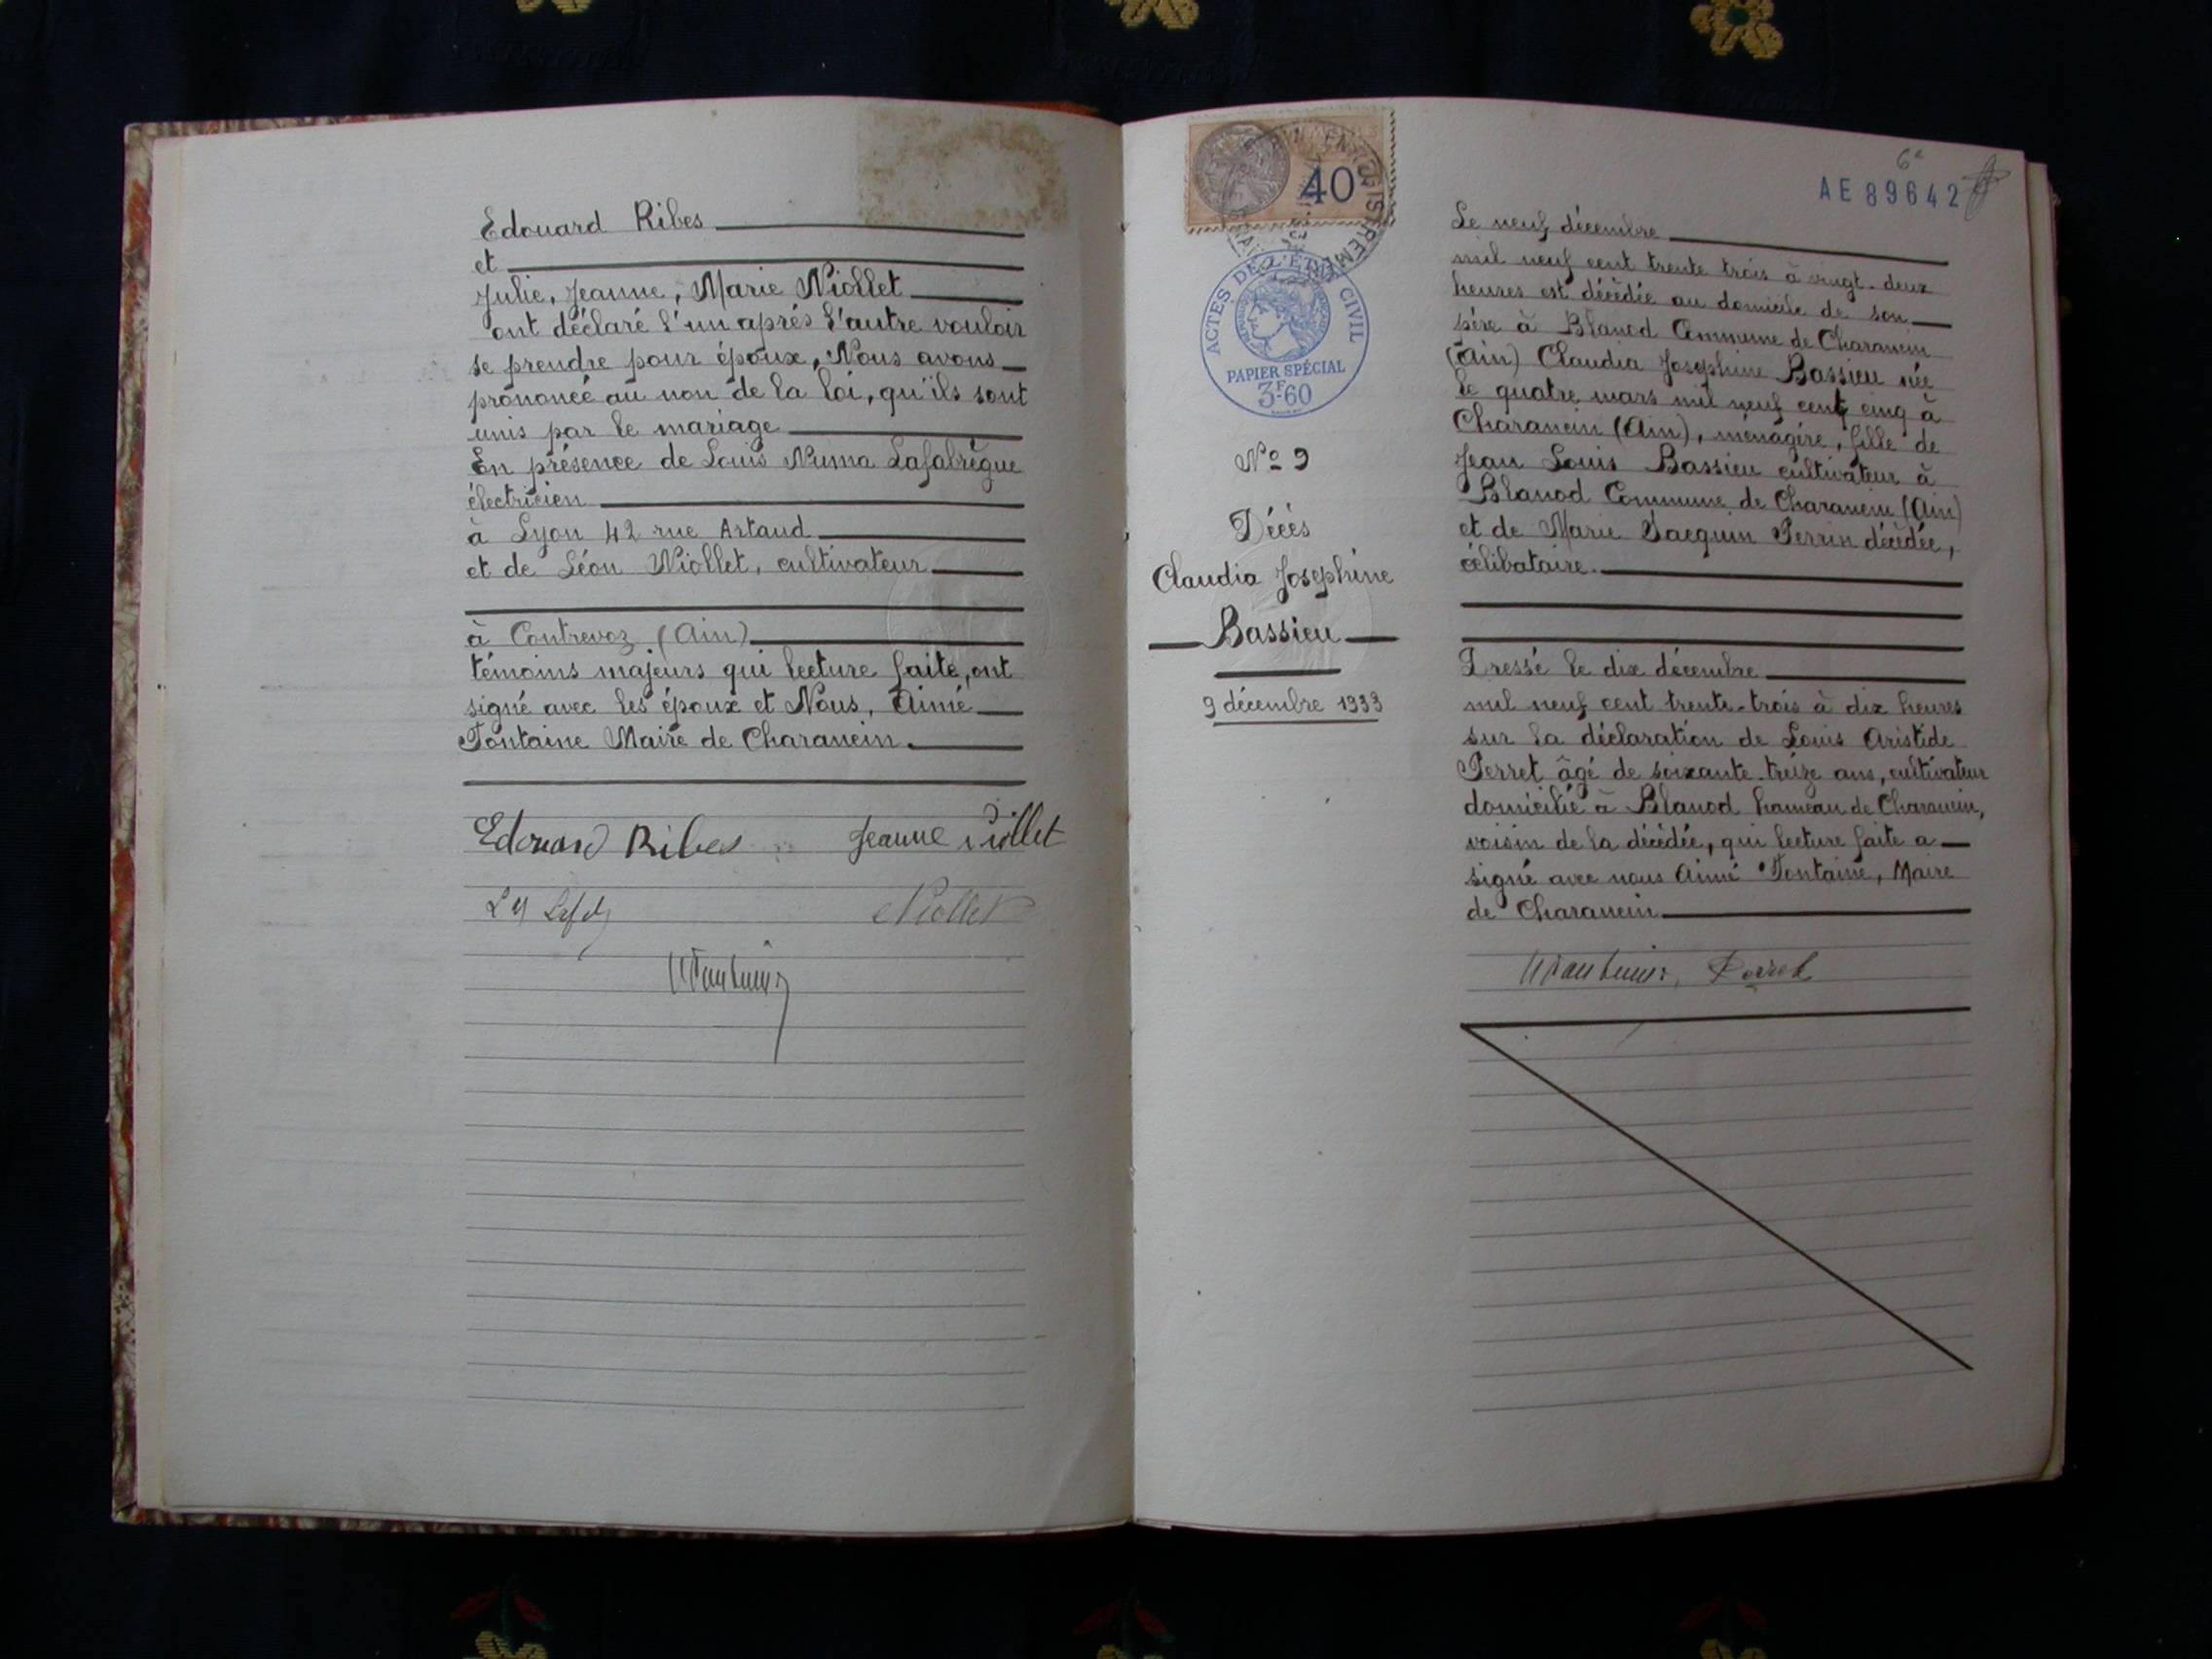 Edouard Ribes
et
Julie, Jeanne, Marie Niollet
ont déclaré l'un après l'autre vouloir
se prendre pour époux, Nous avons
prononcé au non de la loi, qu'ils sont
unis par le mariage
En présence de Louis Numa Lafabrègue
électricien
à Lyon 42 rue Artaud
et de Léon Niollet, cultivateur
à Contrevoz (Ain)
témoins majeurs qui lecture faite, ont
signé avec les époux et Nous, Aimé
Fontaine Maire de Charancin.
Edouard Ribes Jeanne Niollet
Niollet
40
ACTES DE L'ÉTAT CIVIL
PAPIER SPÉCIAL
3F60
No 9
Décès
Claudia Josephine
Bassieu
9 décembre 1933
6e
AE 89642
Le neuf décembre
mil neuf cent trente trois à vingt-deux
heures est décédée au domicile de son
père à Blanod Commune de Charancin
(Ain) Claudia Josephine Bassieu née
le quatre mars mil neuf cent cinq à
Charancin (Ain), ménagère, fille de
Jean Louis Bassieu cultivateur à
Blanod Commune de Charancin (Ain)
et de Marie Jacquin Perrin décédée,
célibataire.
Dressé le dix décembre
mil neuf cent trente-trois à dix heures
sur la déclaration de Louis Aristide
Perret âgé de soixante-treize ans, cultivateur
domicilié à Blanod hameau de Charancin,
voisin de la décédée, qui lecture faite a
signé avec nous Aimé Fontaine, Maire
de Charancin
Perret